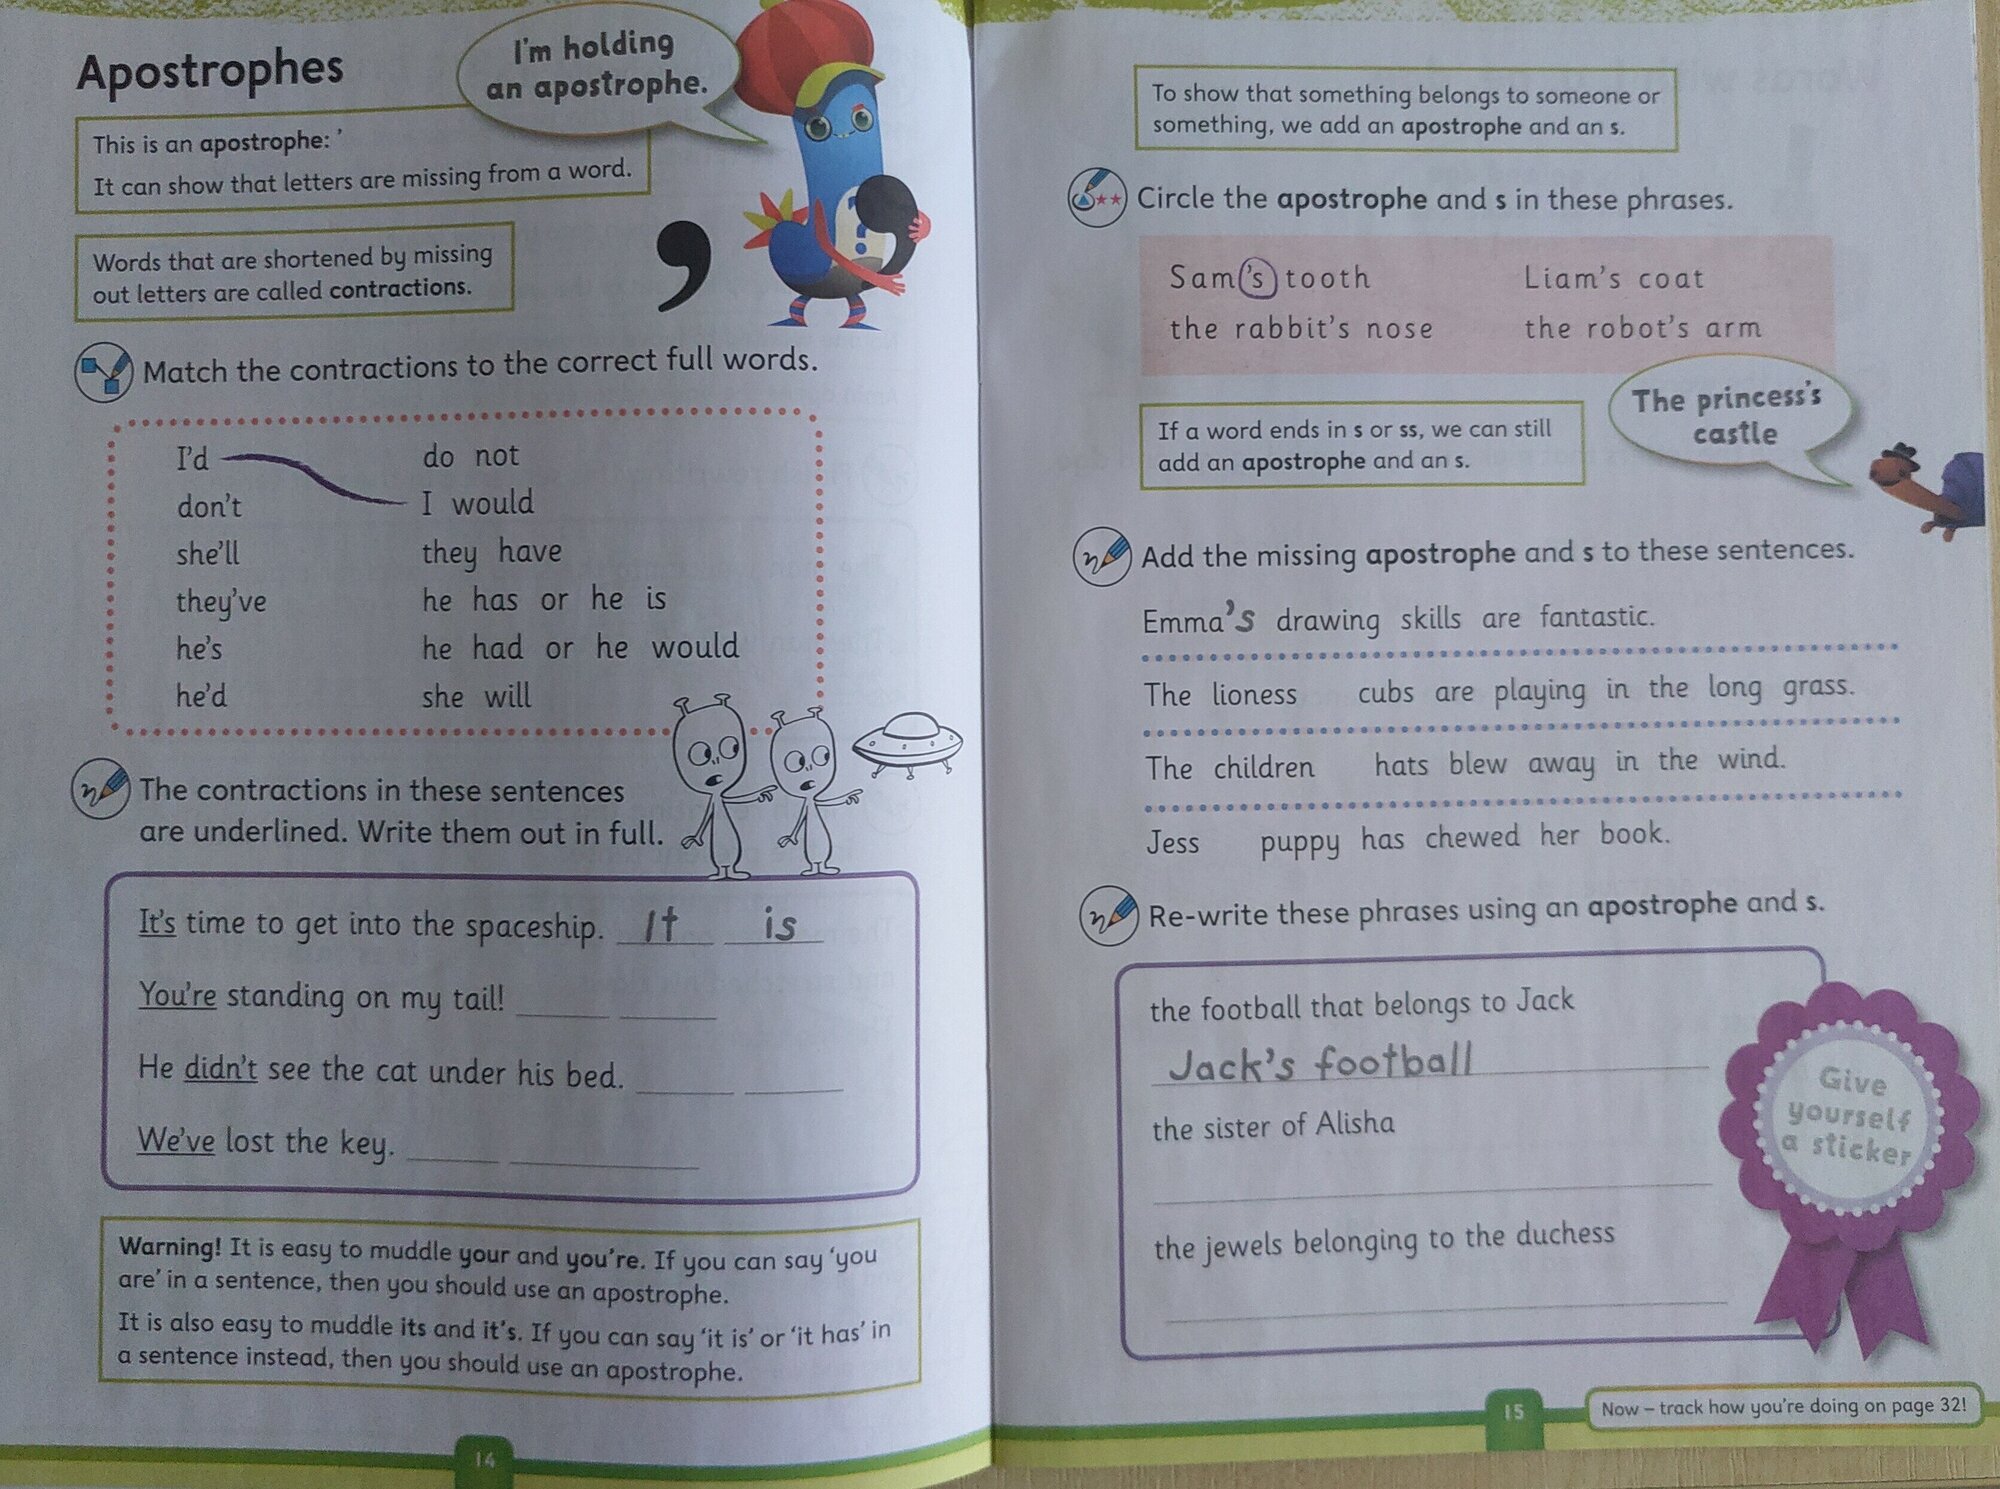 Apostrophes
I'm holding
an apostrophe.
This is an apostrophe: ’
It can show that letters are missing from a word.
Words that are shortened by missing
out letters are called contractions.
Match the contractions to the correct full words.
I'd do not
don't I would
she'll they have
they've he has or he is
he's he had or he would
he'd she will
The contractions in these sentences
are underlined. Write them out in full.
It's time to get into the spaceship. It is
You're standing on my tail!
He didn't see the cat under his bed.
We've lost the key.
Warning! It is easy to muddle your and you're. If you can say ‘you
are’ in a sentence, then you should use an apostrophe.
It is also easy to muddle its and it's. If you can say ‘it is’ or ‘it has’ in
a sentence instead, then you should use an apostrophe.
14
To show that something belongs to someone or
something, we add an apostrophe and an s.
Circle the apostrophe and s in these phrases.
Sam's tooth Liam's coat
the rabbit's nose the robot's arm
If a word ends in s or ss, we can still
add an apostrophe and an s.
The princess's
castle
Add the missing apostrophe and s to these sentences.
Emma's drawing skills are fantastic.
The lioness cubs are playing in the long grass.
The children hats blew away in the wind.
Jess puppy has chewed her book.
Re-write these phrases using an apostrophe and s.
the football that belongs to Jack
Jack's football
the sister of Alisha
the jewels belonging to the duchess
Give
yourself
a sticker
15
Now – track how you're doing on page 32!